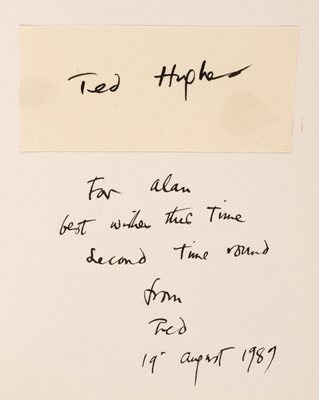 Ted Hughes
For Alan
best wishes this time
second time round
from
Ted
19th August 1989